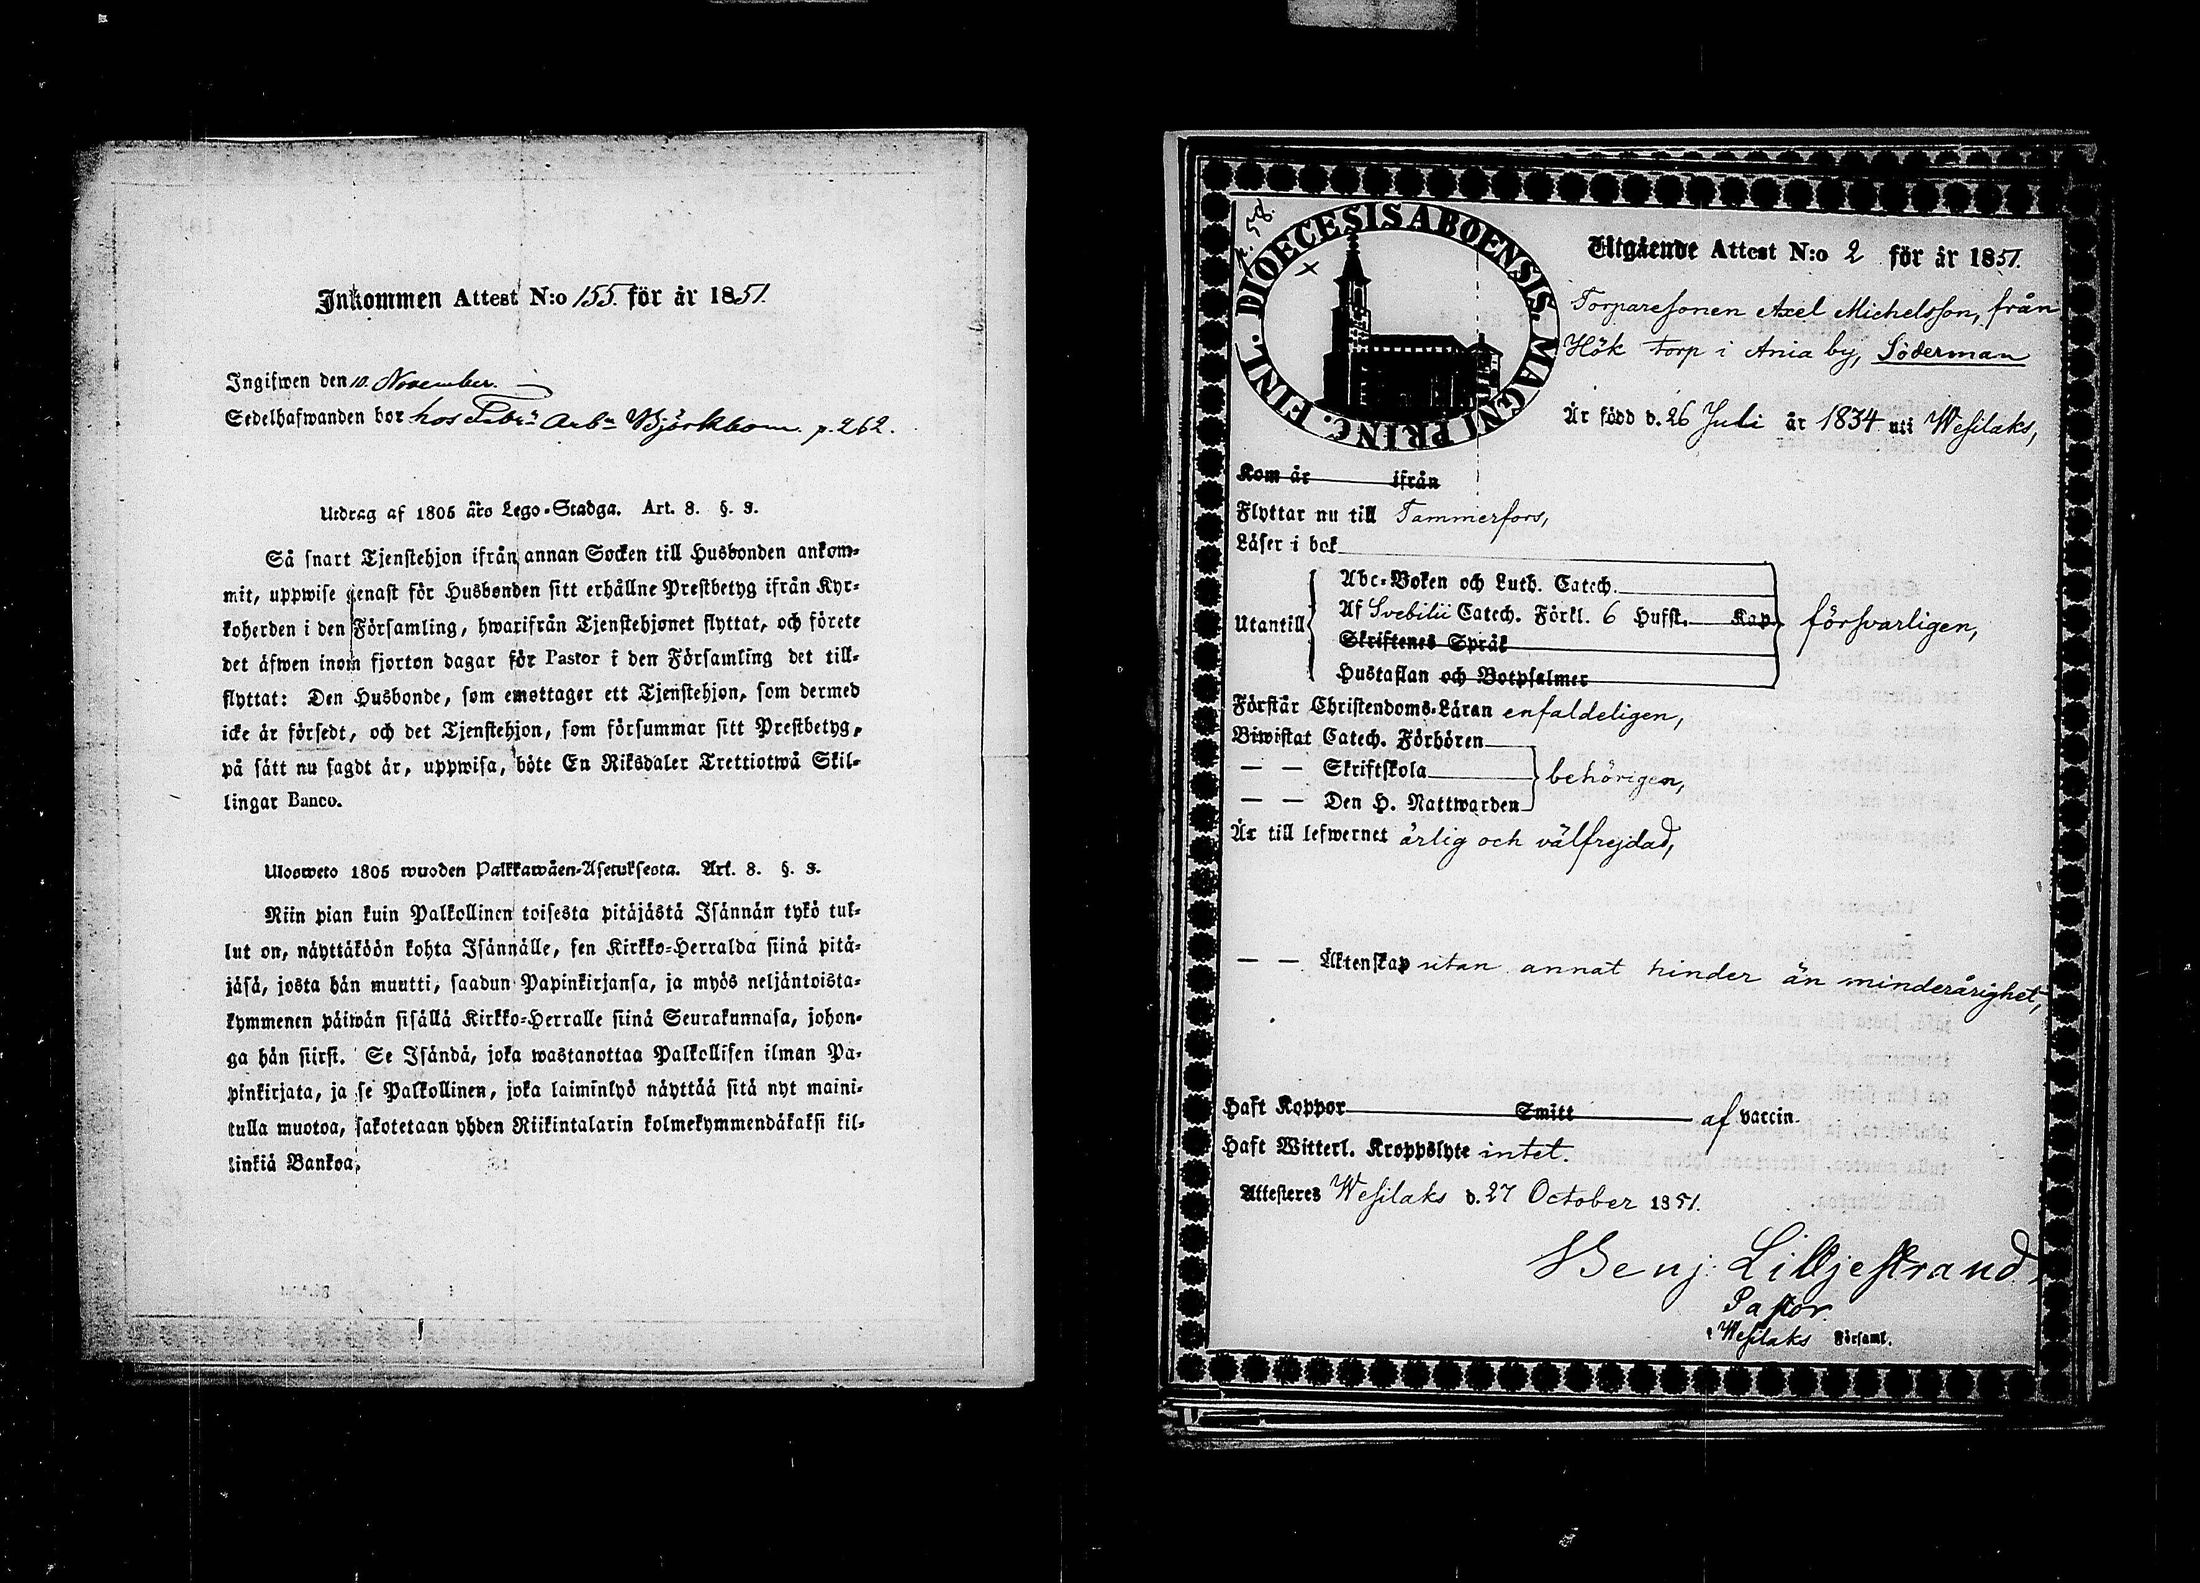 Inkommen Attest N:o 155. för år 1851.
Ingifwen den 10. November.
Sedelhafwanden bor hos Fabrs Arbn Björkbom. p. 262.
Utdrag af 1805 års Lego-Stadga. Art. 8. §. 3.
Så snart Tjenstehjon ifrån annan Socken till Husbonden ankom-
mit, uppwise genast för Husbonden sitt erhållne Prestbetyg ifrån Kyr-
koherden i den Församling, hwarifrån Tjenstehjonet flyttat, och förete
det äfwen inom fjorton dagar för Pastor i den Församling det till-
flyttat: Den Husbonde, som emottager ett Tjenstehjon, som dermed
icke är försedt, och det Tjenstehjon, som försummar sitt Prestbetyg,
på sätt nu sagdt är, uppwisa, böte En Riksdaler Trettiotwå Skil-
lingar Banco.
Ulosweto 1805 wuoden Palkkawäen-Asetuksesta. Art. 8. §. 3.
Niin pian kuin Palkollinen toisesta pitäjästä Isännän tykö tul-
lut on, näyttäköön kohta Isännälle, sen Kirkko-Herralda siinä pitä-
jäsä, josta hän muutti, saadun Papinkirjansa, ja myös neljäntoista-
kymmenen päiwän sisällä Kirkko-Herralle siinä Seurakunnasa, johon-
ga hän siirsi. Se Isändä, joka wastanottaa Palkollisen ilman Pa-
pinkirjata, ja se Palkollinen, joka laiminlyö näyttää sitä nyt maini-
tulla muotoa, sakotetaan yhden Riikintalarin kolmekymmendäkaksi kil-
linkiä Bankoa.
p. 58.
DIOECESIS ABOENSIS. MAGNI PRINC. FINL.
Utgående Attest N:o 2 för år 1851.
Torparesonen Axel Michelsson, från
Hök torp i Ania by, Söderman
Är född d. 26 Juli år 1834 uti Wesilaks,
Kom år ifrån
Flyttar nu till Tammerfors,
Läser i bok
Utantill
Abc-Boken och Luth. Catech.
Af Svebilii Catech. Förkl. 6 Hufst. Kap. försvarligen,
Skriftenes Språk
Hustaflan och Botpsalmer
Förstår Christendoms-Läran enfaldeligen,
Biwistat Catech. Förhören
— — Skriftskola behörigen,
— — Den H. Nattwarden
Är till lefwernet ärlig och välfrejdad,
— — Äktenskap utan annat hinder än minderårighet,
Haft Koppor Smitt af vaccin.
Haft Witterl. Kroppslyte intet.
Attesteres Wesilaks d. 27 October 1851.
Benj: Lilljestrand,
Pastor.
i Wesilaks Församl.